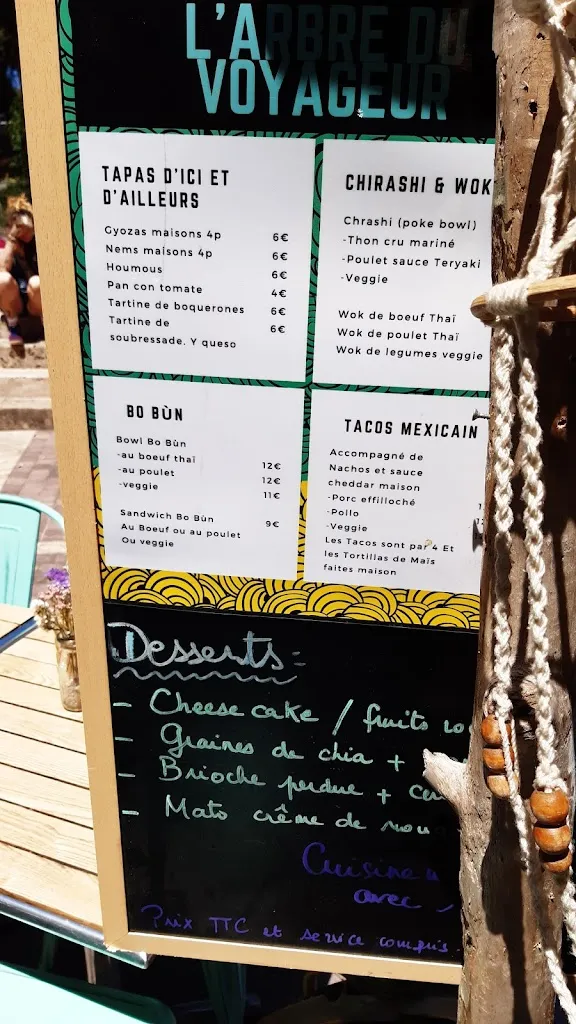 L'ARBRE DU
VOYAGEUR
TAPAS D'ICI ET
D'AILLEURS
Gyozas maisons 4p 6€
Nems maisons 4p 6€
Houmous 6€
Pan con tomate 4€
Tartine de boquerones 6€
Tartine de 6€
soubressade. Y queso
CHIRASHI & WOK
Chrashi (poke bowl)
-Thon cru mariné
-Poulet sauce Teryaki
-Veggie
Wok de boeuf Thaï
Wok de poulet Thaï
Wok de legumes veggie
BO BÙN
Bowl Bo Bùn
-au boeuf thaï 12€
-au poulet 12€
-veggie 11€
Sandwich Bo Bùn 9€
Au Boeuf ou au poulet
Ou veggie
TACOS MEXICAIN
Accompagné de
Nachos et sauce
cheddar maison
-Porc effilloché
-Pollo
-Veggie
Les Tacos sont par 4 Et
les Tortillas de Maïs
faites maison
Desserts:
- Cheese cake / fruits
- Graines de chia +
- Brioche perdue +
- Mato crême de
Cuisine
avec
Prix TTC et service compris.